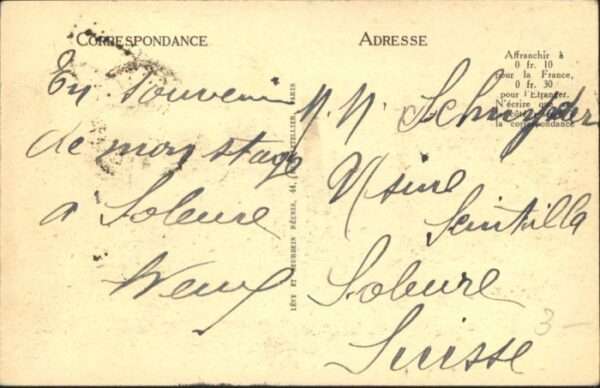 CORRESPONDANCE
En souvenir
de mon stage
a Soleure
ADRESSE
Affranchir à
0 fr. 10
pour la France,
0 fr. 30
pour l'Etranger.
N'écrire que
la correspondance
M. M. Schnyder
Usine
Scintilla
Soleure
Suisse
3-
LÉVY ET NEURDEIN RÉUNIS, 44, LETELLIER, PARIS